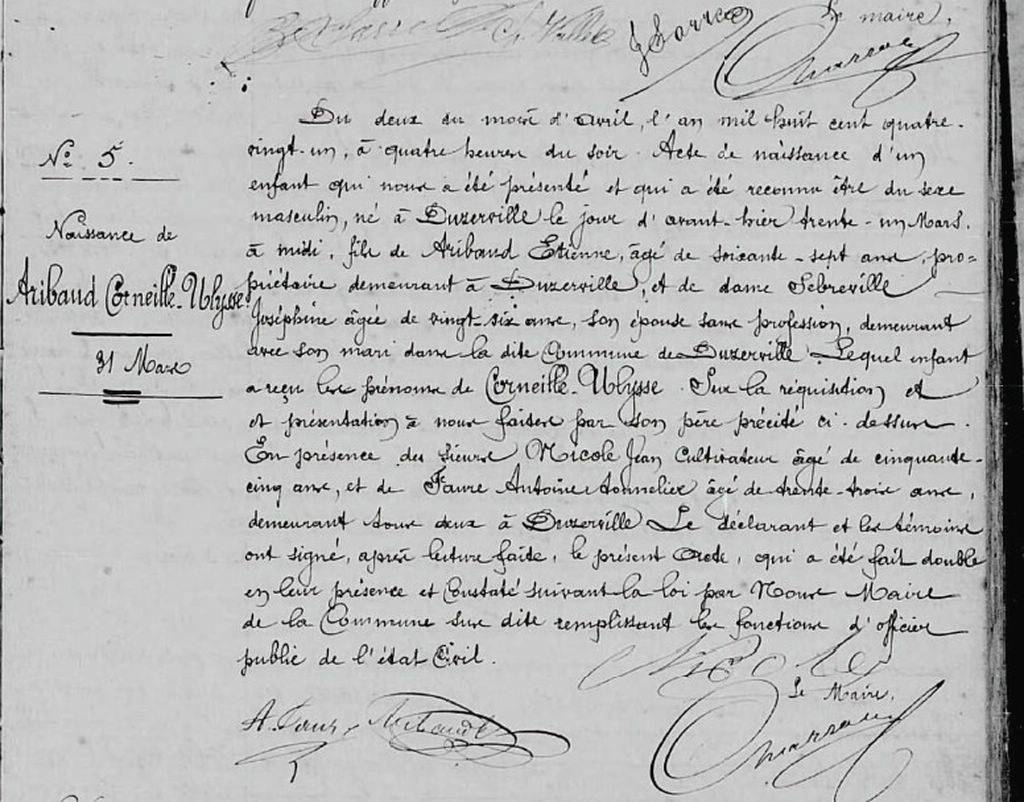 Le maire,
N° 5.
Naissance de
Aribaud Corneille-Ulysse
31 Mars
Du deux du mois d'avril, l'an mil huit cent quatre-
vingt-un, à quatre heures du soir. Acte de naissance d'un
enfant qui nous a été présenté et qui a été reconnu être du sexe
masculin, né à Duzerville le jour d'avant-hier trente-un Mars,
à midi, fils de Aribaud Etienne, âgé de soixante-sept ans, pro-
priétaire demeurant à Duzerville, et de dame Sebreville
Joséphine âgée de vingt-six ans, son épouse sans profession, demeurant
avec son mari dans la dite Commune de Duzerville. Lequel enfant
a reçu les prénoms de Corneille-Ulysse. Sur la réquisition et
et présentation à nous faites par son père précité ci-dessus.
En présence des sieurs Nicole Jean Cultivateur âgé de cinquante-
cinq ans, et de Faure Antoine tonnelier âgé de trente-trois ans,
demeurant tous deux à Duzerville. Le déclarant et les témoins
ont signé, après lecture faite, le présent acte, qui a été fait double
en leur présence et Constaté suivant la loi par Nous Maire
de la Commune sus dite remplissant les fonctions d'officier
public de l'état Civil.
Nicole
Le Maire,
A. Faure Aribaud